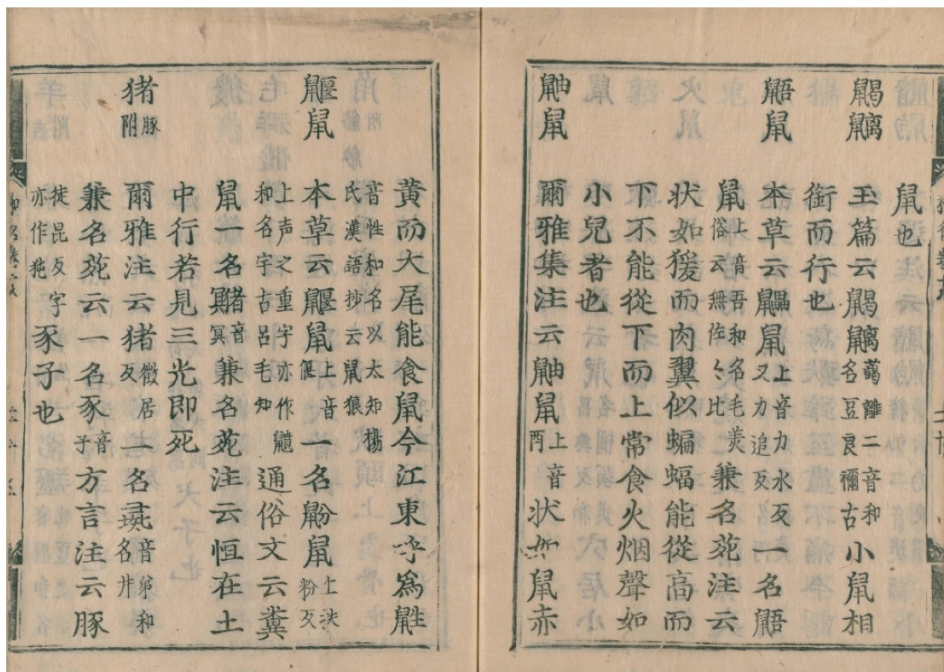 鼠也
玉篇云 藹離二音和名豆良禰古 小鼠相
銜而行也
鼯鼠 本草云鼺鼠 上音力水反又力追反 一名鼯
鼠 上音吾和名毛美俗云無佐々比 兼名苑注云
状如猨而肉翼似蝙蝠能從高而
下不能從下而上常食火烟聲如
小兒者也
鼬鼠 爾雅集注云鼬鼠 上音酉 状如鼠赤
黄而大尾能食鼠今江東呼為鼪
音性和名以太知楊氏漢語抄云鼠狼
鼴鼠 本草云鼴鼠 上音偃 一名鼢鼠 上扶粉反
上声之重字亦作 和名宇古呂毛知 通俗文云糞
鼠一名 音冥 兼名苑注云恒在土
中行若見三光即死
猪 豚附 爾雅注云猪 徴居反 一名彘 音弟和名井
兼名苑云一名豕 音子 方言注云豚
徒昆反字亦作 豕子也